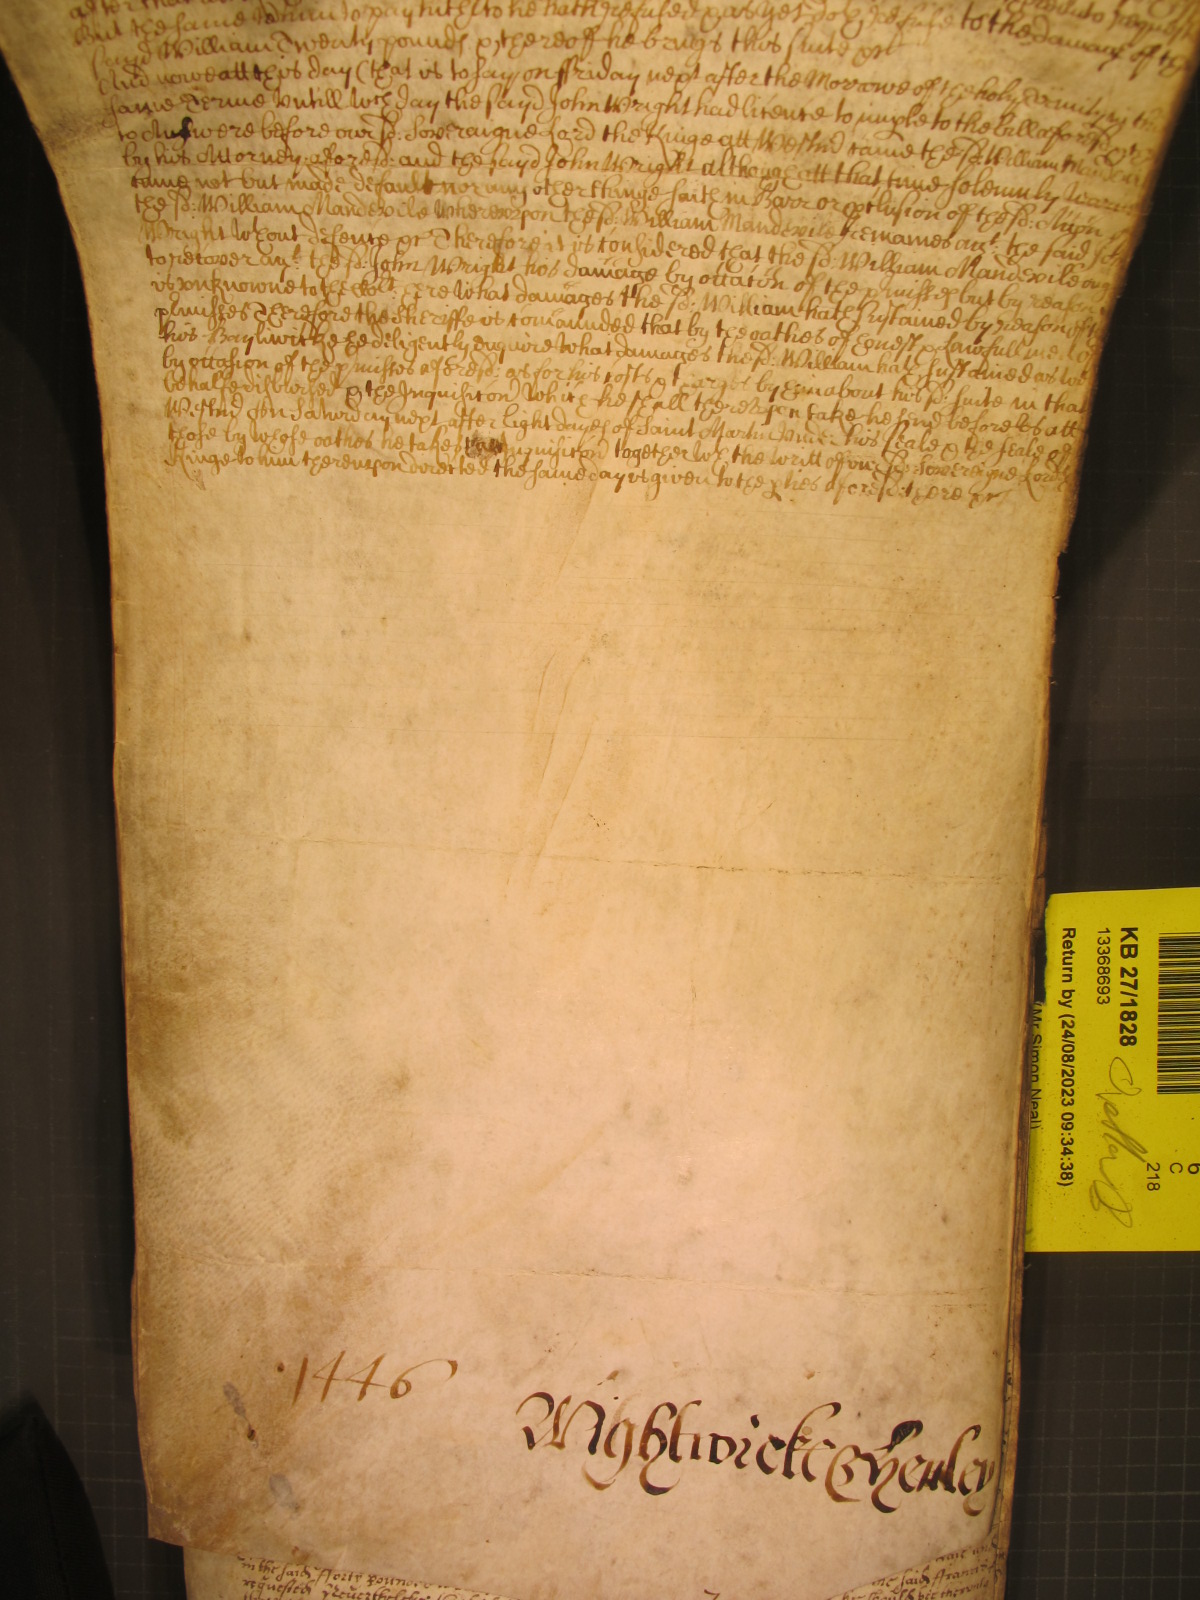 But the same John to pay hath hitherto hath refused & as yet doth refuse to the damage of the
sayd William Twenty pounds & thereof he brings this suite &c
And nowe att this day (that is to say on ffriday next after the Morrowe of the holy Trinity in this
same Terme Untill wch day the sayd John Wright had licence to imple to the bill aforesd &
to Answere before our sd: Soveraigne Lord the Kinge att Westmr came the sd: William Mandevile
by his Attorney aforesd: and the sayd John Wright although att that tyme solemnly
came not but made default nor any other thinge saith in Barr or preclusion of the sd: Action
the sd: William Mandevile Whereupon the sd: William Mandevile remaines agt: the said John
Wright wthout defence &c Therefore it is considered that the sd: William Mandevile
to recover agt: the sd: John Wright his damage by occacon of the pmisses but by reason
is unknowne to the Court here what damages the sd: William hath sustained by reason of the
pmisses Therefore the Sheriffe is comaunded that by the oathes of honest & lawfull men of
his Bayliwicke he deligently enquire what damages the sd: William hath sustained as well
by occasion of the pmisses aforesd: as for his costs & charges by him about his sd: suite in that
behalfe disbursed & the Inquisicon which he shall thereupon take he send before us att
Westmr on Saturday next after Eight dayes of Saint Martin under his seale & the seale of
those by whose oathes he takes that inquisicon together wth the writt of our sd: Sovereigne Lord
Kinge to him thereupon directed the same day is given to the pties aforesd: there &c
1446
Wightwicke & Henley
KB 27/1828
13368693
Return by (24/08/2023 09:34:38)
(Mr Simon Neal)
218
C
6
in the said fforty pounds
requested Nevertheless
the said ffrancis